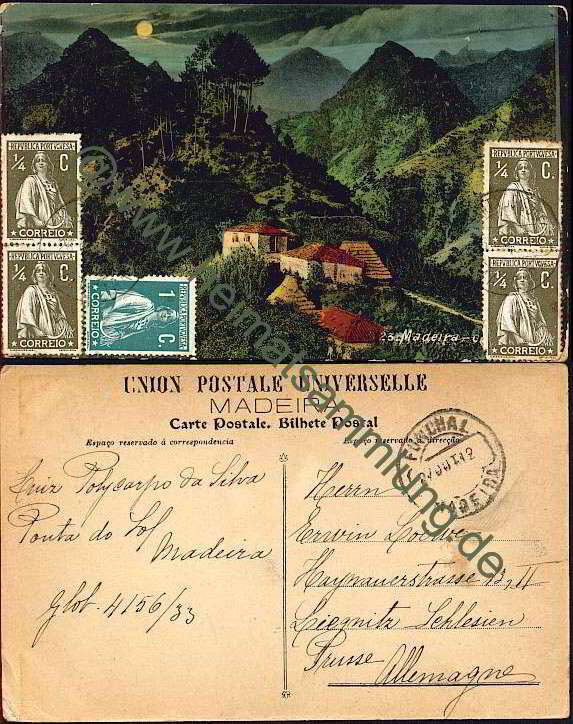 REPUBLICA PORTUGUESA
¼ C.
CORREIO
REPUBLICA PORTUGUESA
¼ C.
CORREIO
REPUBLICA PORTUGUESA
1 C.
CORREIO
REPUBLICA PORTUGUESA
¼ C.
CORREIO
REPUBLICA PORTUGUESA
¼ C.
CORREIO
23. Madeira-
@www.heimatsammlung.de
UNION POSTALE UNIVERSELLE
MADEIRA
Carte Postale. Bilhete Postal
Espaço reservado á correspondencia
Espaço reservado á direcção
FUNCHAL
OUT 12
MADEIRA
Luiz Polycarpo da Silva
Ponta do Sol
Madeira
Glob. 4156/33
Herrn
Erwin Loewe
Haynauerstrasse 13, II
Liegnitz Schlesien
Prusse Allemagne